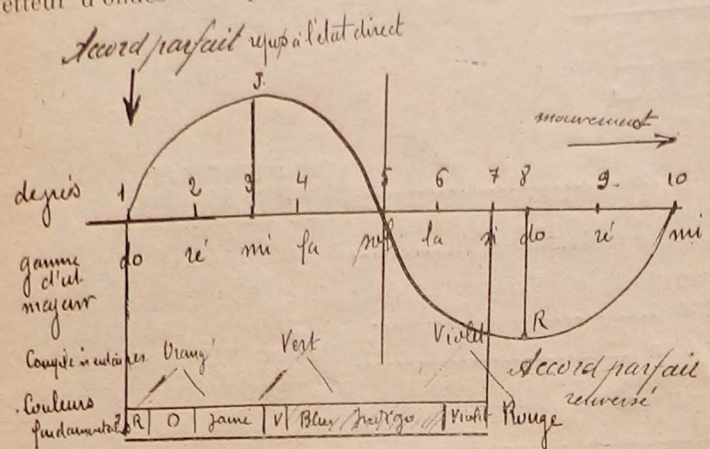 d'ondes
Accord parfait repos à l'état direct
J.
mouvement
degrés 1 2 3 4 5 6 7 8 9 10
gamme d'ut majeur
do ré mi fa sol la si do ré mi
R
Complémentaires Orangé Vert Violet
Accord parfait renversé
Couleurs fondamentales
R O Jaune V Bleu Indigo Violet Rouge